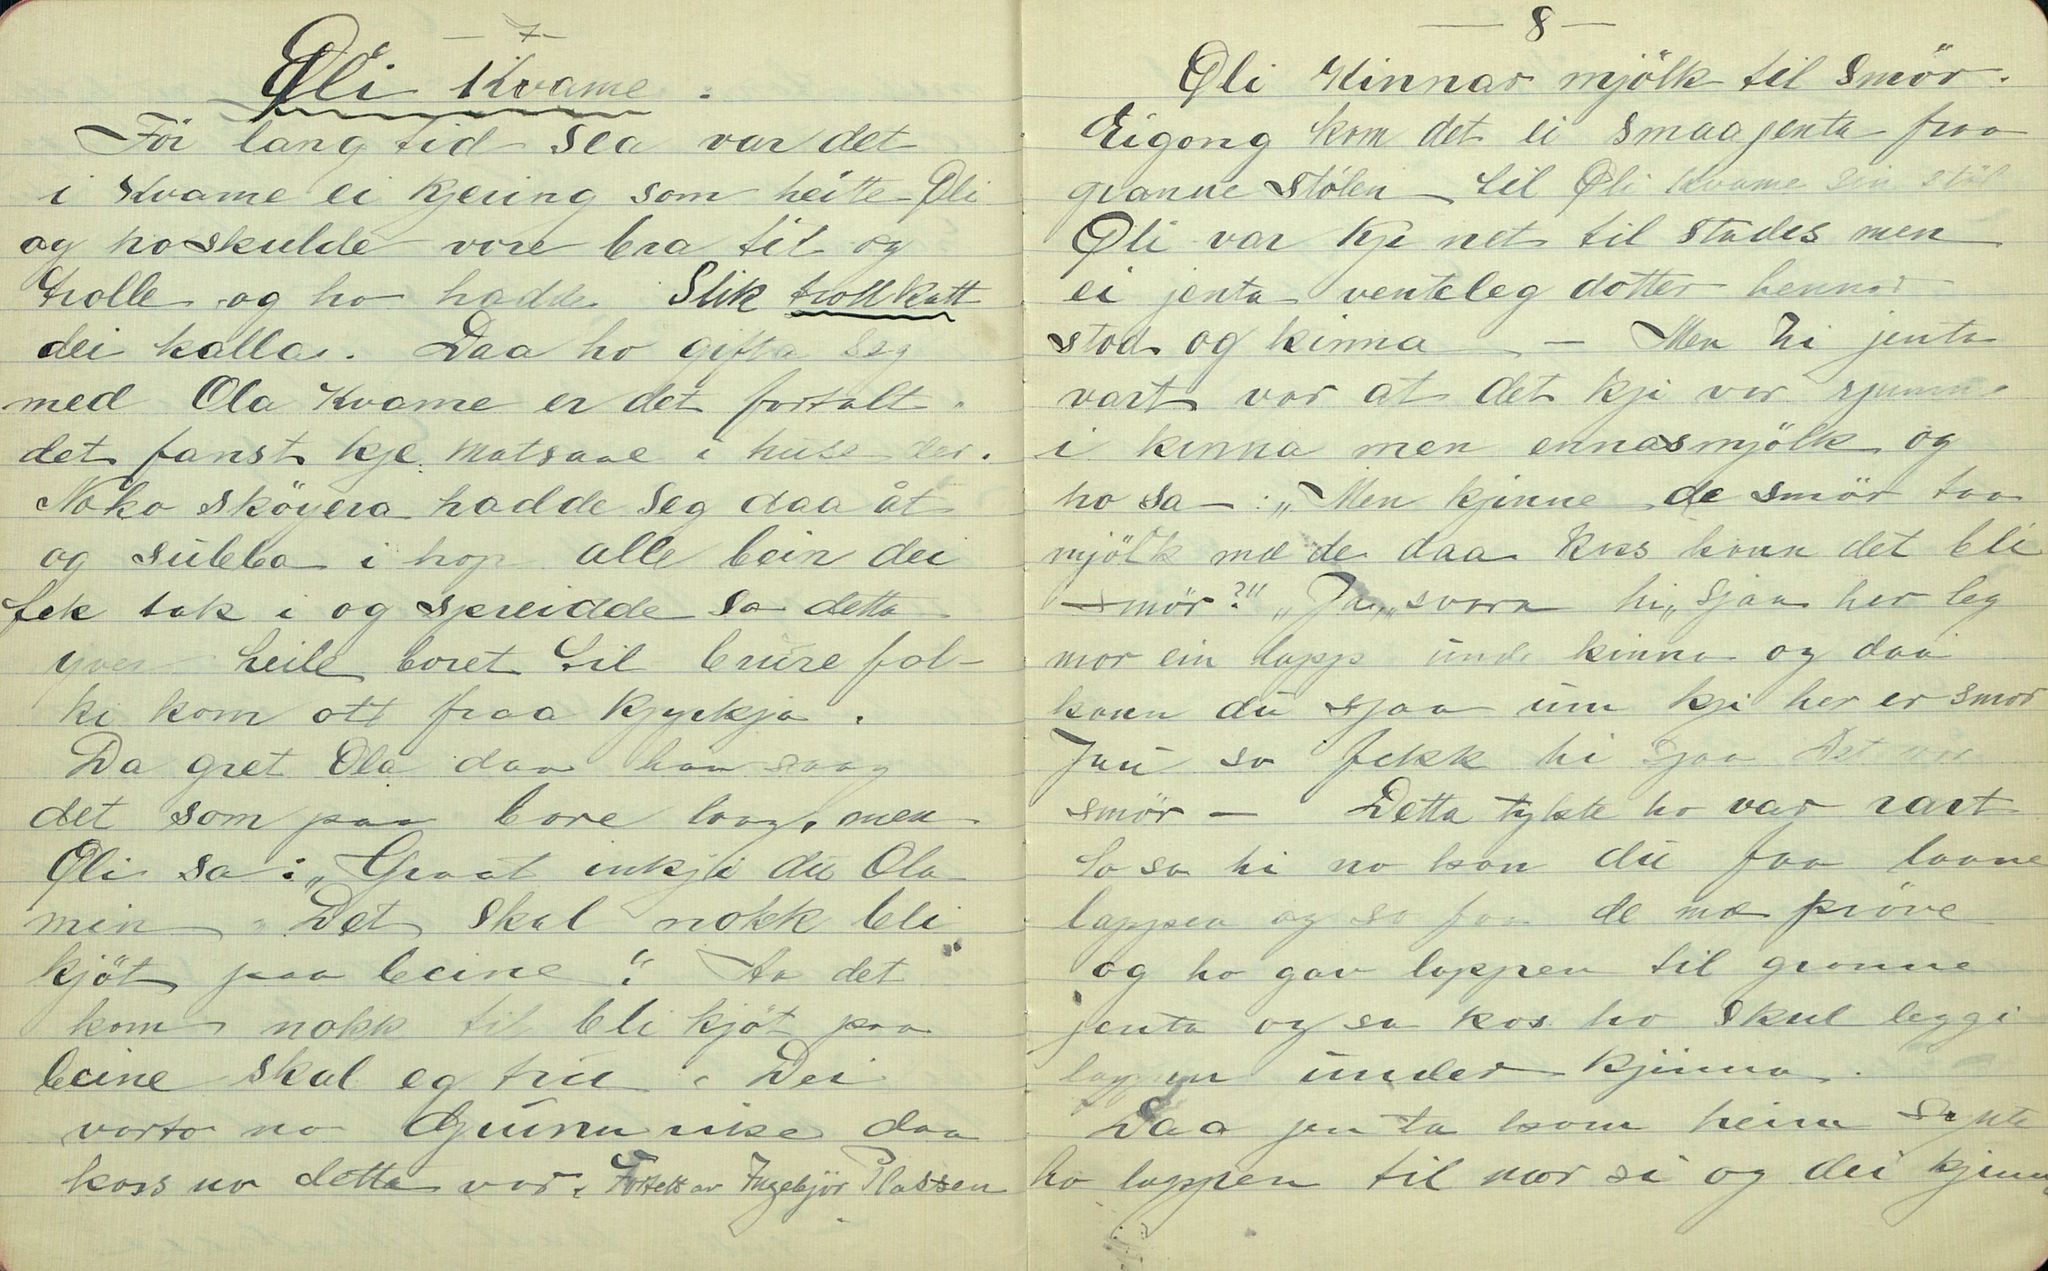 — 7 —
Øli Kvame.
För lang tid sea var det
i Kvame ei kjering som heitte Øli
og ho skulde vore bra til og
trolle og ho hadde Slik trollkatt
dei kallar. Daa ho gifta seg
med Ola Kvame er det fortalt.
det fanst kje matsaae i huse der.
Noko sköyera hadde seg daa åt
og subba i hop alle bein dei
fek tak i og spreidde so detta
yver heile boret til brurefol-
ki kom att fraa kjyrkja.
Da gret Ola daa han saag
det som paa bore laag, men
Øli sa: „Graat inkji du Ola
min. Det skal nokk bli
kjöt paa beine". Aa det
kom nokk til bli kjöt paa
beine skal eg tru. Dei
vorto no Grunnrike daa
koss no detta var. Fortelt av Ingebjör Plassen
— 8 —
Øli Kinnar mjölk til smör.
Eigong kom det ei smaajenta fraa
granne stölen til Øli Kvame sin stöl
Øli var kje net til stades men
ei jenta venteleg dotter hennar
stod og kinna — Men hi jenta
vart var at det kji var rjumme
i kinna men ennasmjölk og
ho sa —: „Men kjinne de smör taa
mjölk mæ de daa koss kann det bli
smör?" „Ja„ „svara hi„ sjaa her leg
mor ein lapp unde kinna og daa
kann du sjaa um kji her er smör
Jau so fekk hi sjaa Det var
smör — Detta tykte ho var rart
So sa hi no kan du faa laane
lappen og so faa de mæ pröve
og ho gav lappen til granne
jenta og sa kos ho skul leggi
lappen under kjinna.
Daa jenta kom heim synte
ho lappen til mor si og dei kjinna